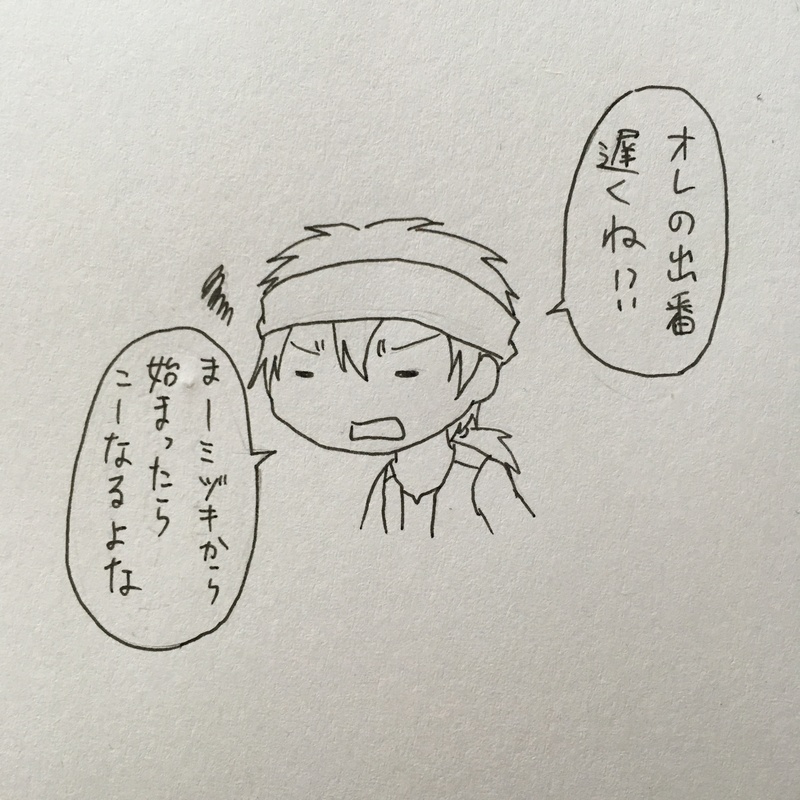 オレの出番
遅くね!?
まーミヅキから
始まったら
こーなるよな